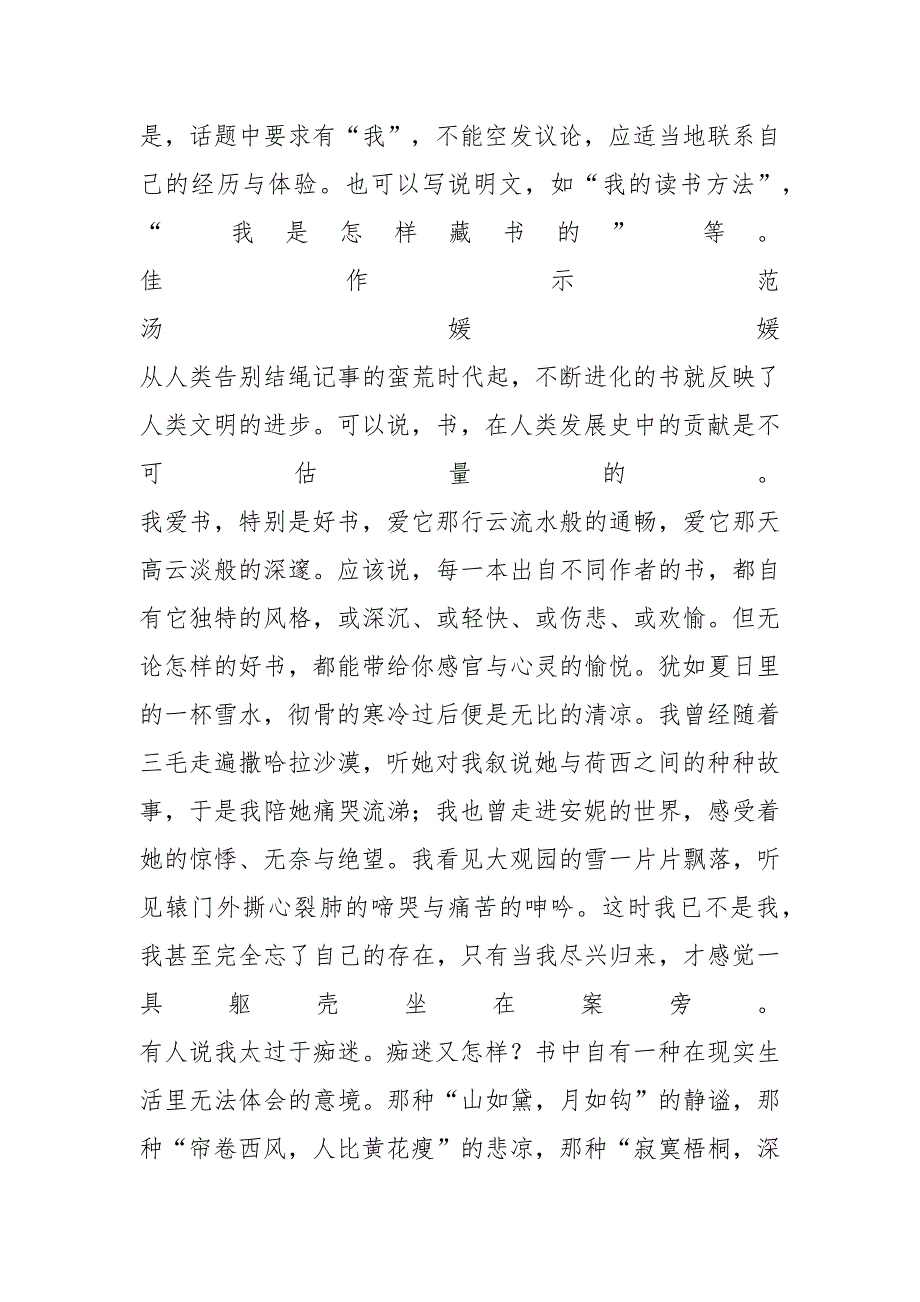 是，话题中要求有“我”，不能空发议论，应适当地联系自
己的经历与体验。也可以写说明文，如“我的读书方法”，
“我是怎样藏书的”等。
佳作示范
汤媛媛
从人类告别结绳记事的蛮荒时代起，不断进化的书就反映了
人类文明的进步。可以说，书，在人类发展史中的贡献是不
可估量的。
我爱书，特别是好书，爱它那行云流水般的通畅，爱它那天
高云淡般的深邃。应该说，每一本出自不同作者的书，都自
有它独特的风格，或深沉、或轻快、或伤悲、或欢愉。但无
论怎样的好书，都能带给你感官与心灵的愉悦。犹如夏日里
的一杯雪水，彻骨的寒冷过后便是无比的清凉。我曾经随着
三毛走遍撒哈拉沙漠，听她对我叙说她与荷西之间的种种故
事，于是我陪她痛哭流涕；我也曾走进安妮的世界，感受着
她的惊悸、无奈与绝望。我看见大观园的雪一片片飘落，听
见辕门外撕心裂肺的啼哭与痛苦的呻吟。这时我已不是我，
我甚至完全忘了自己的存在，只有当我尽兴归来，才感觉一
具躯壳坐在案旁。
有人说我太过于痴迷。痴迷又怎样？书中自有一种在现实生
活里无法体会的意境。那种“山如黛，月如钩”的静谧，那
种“帘卷西风，人比黄花瘦”的悲凉，那种“寂寞梧桐，深